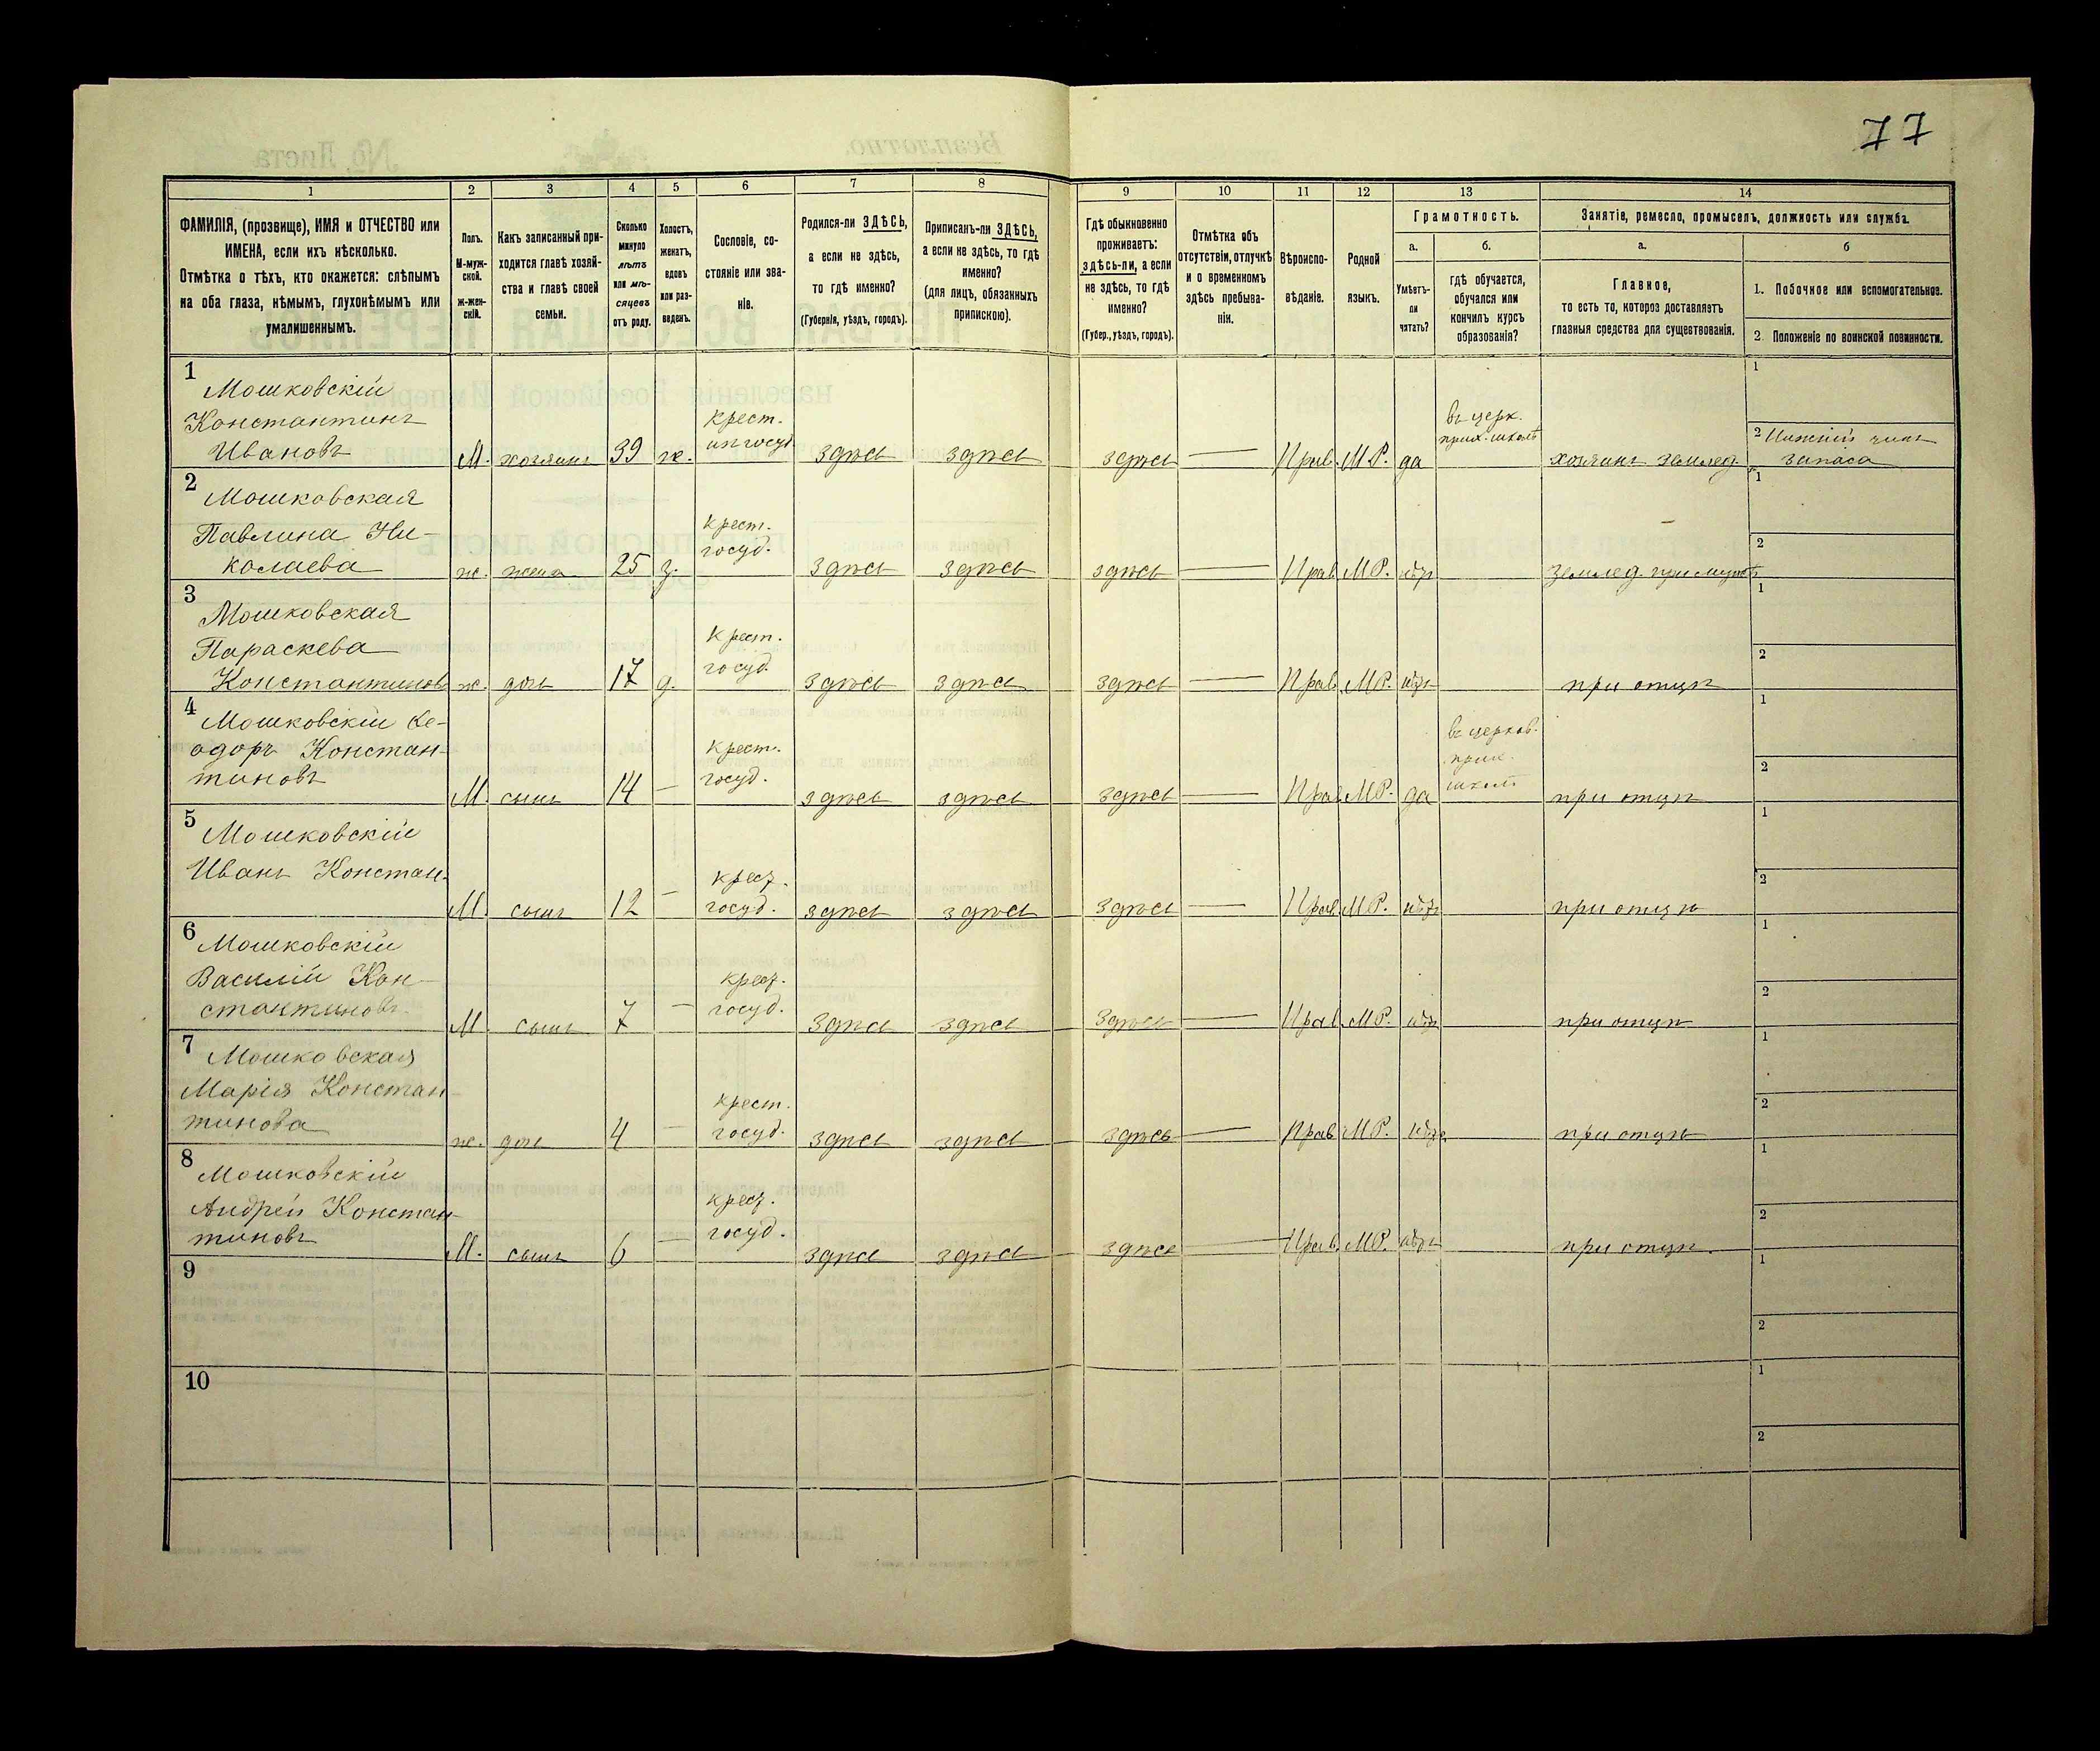 77
1 2 3 4 5 6 7 8 9 10 11 12 13 14
ФАМИЛІЯ, (прозвище), ИМЯ и ОТЧЕСТВО или
ИМЕНА, если ихъ нѣсколько.
Отмѣтка о тѣхъ, кто окажется: слѣпымъ
на оба глаза, нѣмымъ, глухонѣмымъ или
умалишеннымъ.
Полъ.
М-муж-
ской.
ж-жен-
скій.
Какъ записанный при-
ходится главѣ хозяй-
ства и главѣ своей
семьи.
Сколько
минуло
лѣтъ
или мѣ-
сяцевъ
отъ роду.
Холостъ,
женатъ,
вдовъ
или раз-
веденъ.
Сословіе, со-
стояніе или зва-
ніе.
Родился-ли ЗДѢСЬ,
а если не здѣсь,
то гдѣ именно?
(Губернія, уѣздъ, городъ).
Приписанъ-ли ЗДѢСЬ,
а если не здѣсь, то гдѣ
именно?
(для лицъ, обязанныхъ
припискою).
Гдѣ обыкновенно
проживаетъ:
здѣсь-ли, а если
не здѣсь, то гдѣ
именно?
(Губер., уѣздъ, городъ).
Отмѣтка объ
отсутствіи, отлучкѣ
и о временномъ
здѣсь пребыва-
ніи.
Вѣроиспо-
вѣданіе.
Родной
языкъ.
Грамотность.
а.
Умѣетъ-
ли
читать?
б.
гдѣ обучается,
обучался или
кончилъ курсъ
образованія?
Занятіе, ремесло, промыселъ, должность или служба.
а.
Главное,
то есть то, которое доставляетъ
главныя средства для существованія.
б
1. Побочное или вспомогательное.
2. Положеніе по воинской повинности.
1
Мошковскій
Константинъ
Ивановъ
М. хозяинъ 39 ж.
крест.
изъ госуд.
здѣсь здѣсь здѣсь — Прав. М.Р. да
въ церк.
прих. школѣ
хозяинъ землед.
1
2 Нижній чинъ
запаса
2
Мошковская
Павлина Ни-
колаева
ж. жена 25 з.
крест.
госуд.
здѣсь здѣсь здѣсь — Прав. М.Р. нѣтъ
землед. при мужѣ
1
2
3
Мошковская
Параскева
Константинов
ж. дочь 17 д.
крест.
госуд.
здѣсь здѣсь здѣсь — Прав. М.Р. нѣтъ
при отцѣ
1
2
4
Мошковскій Ѳе-
одоръ Констан-
тиновъ
М. сынъ 14 —
крест.
госуд.
здѣсь здѣсь здѣсь — Прав. М.Р. да
въ церков.
прих.
школ.
при отцѣ
1
2
5
Мошковскій
Иванъ Констан.
М. сынъ 12 —
крест.
госуд.
здѣсь здѣсь здѣсь — Прав. М.Р. нѣтъ
при отцѣ
1
2
6
Мошковскій
Василій Кон-
стантиновъ
М. сынъ 7 —
крест.
госуд.
здѣсь здѣсь здѣсь — Прав. М.Р. нѣтъ
при отцѣ
1
2
7
Мошковская
Марія Констан-
тинова
ж. дочь 4 —
крест.
госуд.
здѣсь здѣсь здѣсь — Прав. М.Р. нѣтъ
при отцѣ
1
2
8
Мошковскій
Андрей Констан-
тиновъ
М. сынъ 6 —
крест.
госуд.
здѣсь здѣсь здѣсь — Прав. М.Р. нѣтъ
при отцѣ
1
2
9
1
2
10
1
2